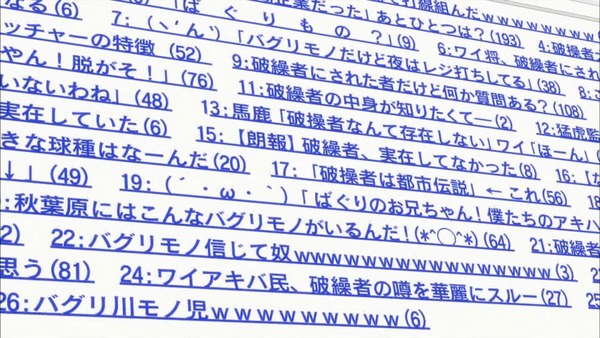 なる(6) 「ばぐりもの?」(9) 企業だった」あとひとつは?(193) 4:破操者
7:(ヽ´ん`)「バグリモノだけど夜はレジ打ちしてる」(38) 8:
ッチャーの特徴 (52) 9:破繰者にされた者だけど何か質問ある?(108)
6:ワイ将、破繰者にされ
やん!脱がそ!」(76) 11:破繰者の中身が知りたくて―(2) 12:猛虎
いないわね」(48) 13:馬鹿「破操者なんて存在しない」ワイ「ほーん」
実在していた(6) 15:【朗報】破繰者、実在してなかった(8) 16:
きな球種はなーんだ(20) 17:「破操者は都市伝説」←これ(56)
↓」(49) 19:(´・ω・`)「ばぐりのお兄ちゃん!僕たちのアキハ
:秋葉原にはこんなバグリモノがいるんだ!(*^◯^*)(64) 21:破繰者
2) 22:バグリモノ信じて奴wwwwwwwwwwwwwwwwww(3)
思う(81) 24:ワイアキバ民、破繰者の噂を華麗にスルー(27) 25
26:バグリ川モノ児wwwwwwwww(6)